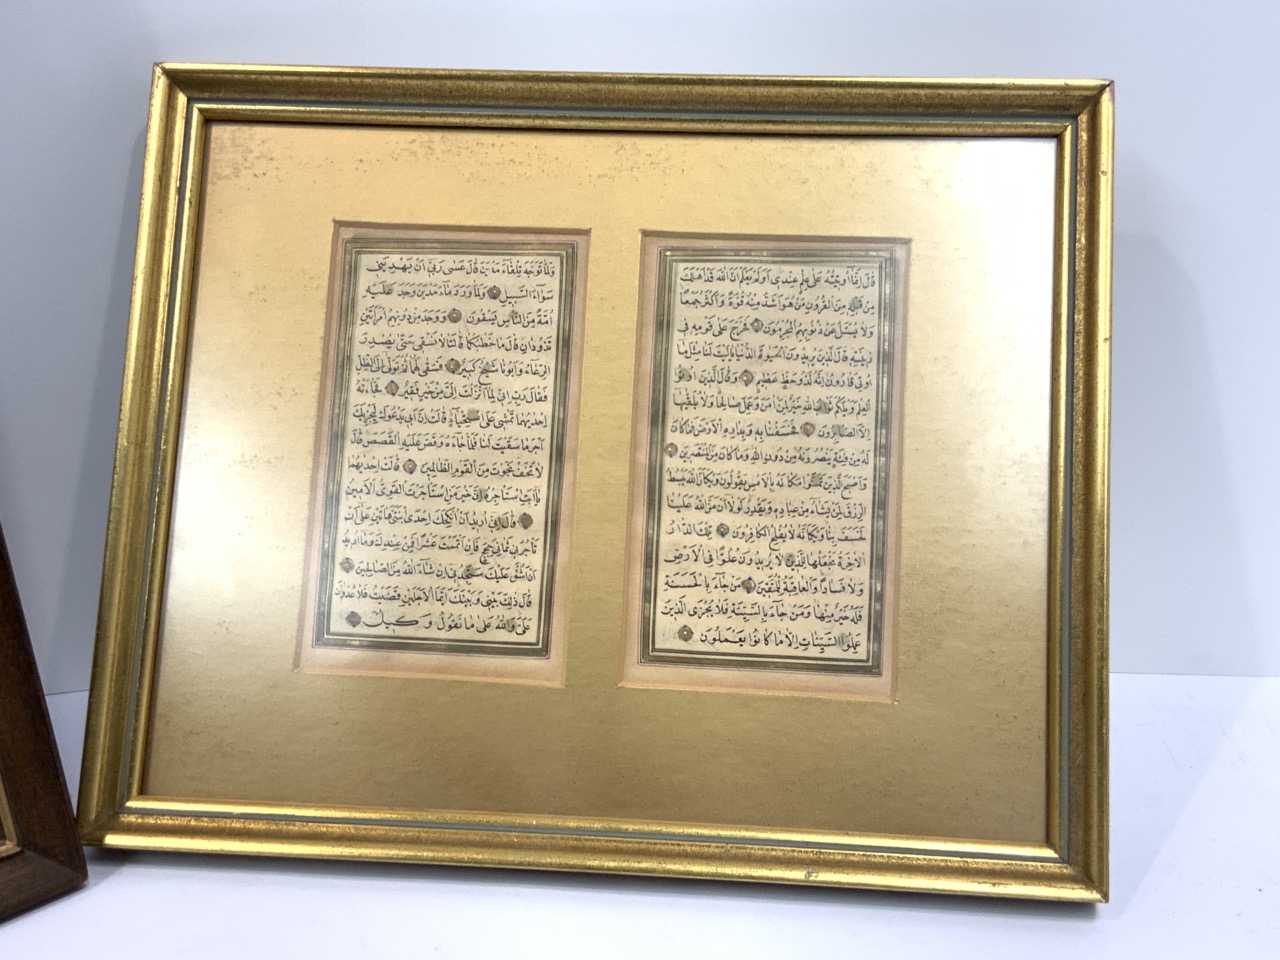 قَالَ اِنَّمَا اُوتِيتُهُ عَلٰى عِلْمٍ عِنْدِي اَوَلَمْ يَعْلَمْ اَنَّ اللّٰهَ قَدْ اَهْلَكَ
مِنْ قَبْلِهِ مِنَ الْقُرُونِ مَنْ هُوَ اَشَدُّ مِنْهُ قُوَّةً وَاَكْثَرُ جَمْعًا
وَلَا يُسْئَلُ عَنْ ذُنُوبِهِمُ الْمُجْرِمُونَ فَخَرَجَ عَلٰى قَوْمِهِ فِي
زِينَتِهِ قَالَ الَّذِينَ يُرِيدُونَ الْحَيٰوةَ الدُّنْيَا يَالَيْتَ لَنَا مِثْلَ مَا
اُوتِيَ قَارُونُ اِنَّهُ لَذُو حَظٍّ عَظِيمٍ وَقَالَ الَّذِينَ اُوتُوا
الْعِلْمَ وَيْلَكُمْ ثَوَابُ اللّٰهِ خَيْرٌ لِمَنْ اٰمَنَ وَعَمِلَ صَالِحًا وَلَا يُلَقّٰيهَا
اِلَّا الصَّابِرُونَ فَخَسَفْنَا بِهِ وَبِدَارِهِ الْاَرْضَ فَمَا كَانَ
لَهُ مِنْ فِئَةٍ يَنْصُرُونَهُ مِنْ دُونِ اللّٰهِ وَمَا كَانَ مِنَ الْمُنْتَصِرِينَ
وَاَصْبَحَ الَّذِينَ تَمَنَّوْا مَكَانَهُ بِالْاَمْسِ يَقُولُونَ وَيْكَاَنَّ اللّٰهَ يَبْسُطُ
الرِّزْقَ لِمَنْ يَشَاءُ مِنْ عِبَادِهِ وَيَقْدِرُ لَوْلَا اَنْ مَنَّ اللّٰهُ عَلَيْنَا
لَخَسَفَ بِنَا وَيْكَاَنَّهُ لَا يُفْلِحُ الْكَافِرُونَ تِلْكَ الدَّارُ
الْاٰخِرَةُ نَجْعَلُهَا لِلَّذِينَ لَا يُرِيدُونَ عُلُوًّا فِي الْاَرْضِ
وَلَا فَسَادًا وَالْعَاقِبَةُ لِلْمُتَّقِينَ مَنْ جَاءَ بِالْحَسَنَةِ
فَلَهُ خَيْرٌ مِنْهَا وَمَنْ جَاءَ بِالسَّيِّئَةِ فَلَا يُجْزَى الَّذِينَ
عَمِلُوا السَّيِّئَاتِ اِلَّا مَا كَانُوا يَعْمَلُونَ
وَلَمَّا تَوَجَّهَ تِلْقَاءَ مَدْيَنَ قَالَ عَسٰى رَبِّي اَنْ يَهْدِيَنِي
سَوَاءَ السَّبِيلِ وَلَمَّا وَرَدَ مَاءَ مَدْيَنَ وَجَدَ عَلَيْهِ
اُمَّةً مِنَ النَّاسِ يَسْقُونَ وَوَجَدَ مِنْ دُونِهِمُ امْرَاَتَيْنِ
تَذُودَانِ قَالَ مَا خَطْبُكُمَا قَالَتَا لَا نَسْقِي حَتّٰى يُصْدِرَ
الرِّعَاءُ وَاَبُونَا شَيْخٌ كَبِيرٌ فَسَقٰى لَهُمَا ثُمَّ تَوَلّٰى اِلَى الظِّلِّ
فَقَالَ رَبِّ اِنِّي لِمَا اَنْزَلْتَ اِلَيَّ مِنْ خَيْرٍ فَقِيرٌ فَجَاءَتْهُ
اِحْدٰيهُمَا تَمْشِي عَلَى اسْتِحْيَاءٍ قَالَتْ اِنَّ اَبِي يَدْعُوكَ لِيَجْزِيَكَ
اَجْرَ مَا سَقَيْتَ لَنَا فَلَمَّا جَاءَهُ وَقَصَّ عَلَيْهِ الْقَصَصَ قَالَ
لَا تَخَفْ نَجَوْتَ مِنَ الْقَوْمِ الظَّالِمِينَ قَالَتْ اِحْدٰيهُمَا
يَا اَبَتِ اسْتَأْجِرْهُ اِنَّ خَيْرَ مَنِ اسْتَأْجَرْتَ الْقَوِيُّ الْاَمِينُ
قَالَ اِنِّي اُرِيدُ اَنْ اُنْكِحَكَ اِحْدَى ابْنَتَيَّ هَاتَيْنِ عَلٰى اَنْ
تَأْجُرَنِي ثَمَانِيَ حِجَجٍ فَاِنْ اَتْمَمْتَ عَشْرًا فَمِنْ عِنْدِكَ وَمَا اُرِيدُ
اَنْ اَشُقَّ عَلَيْكَ سَتَجِدُنِي اِنْ شَاءَ اللّٰهُ مِنَ الصَّالِحِينَ
قَالَ ذٰلِكَ بَيْنِي وَبَيْنَكَ اَيَّمَا الْاَجَلَيْنِ قَضَيْتُ فَلَا عُدْوَانَ
عَلَيَّ وَاللّٰهُ عَلٰى مَا نَقُولُ وَكِيلٌ